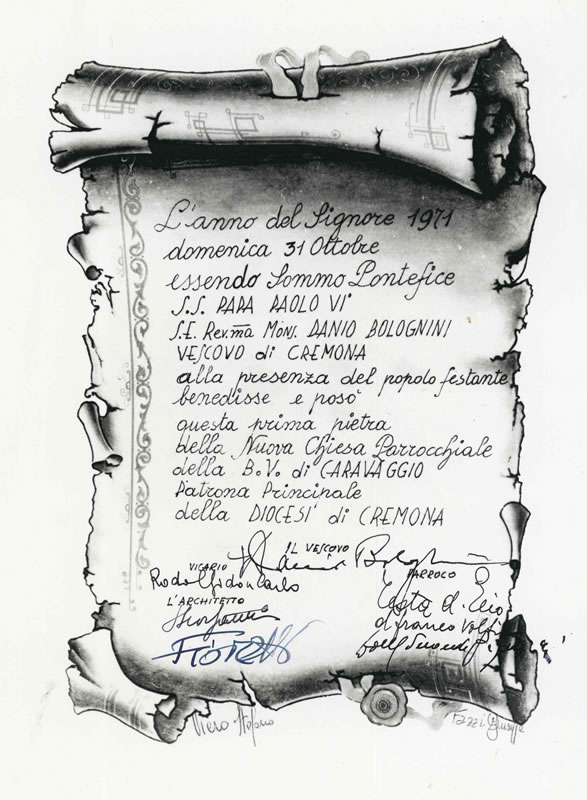 L'anno del Signore 1971
domenica 31 Ottobre
essendo Sommo Pontefice
S.S. PAPA PAOLO VI°
S.E. Rev.ma Mons. DANIO BOLOGNINI
VESCOVO di CREMONA
alla presenza del popolo festante
benedisse e posò
questa prima pietra
della Nuova Chiesa Parrocchiale
della B.V. di CARAVAGGIO
Patrona Principale
della DIOCESI di CREMONA
IL VESCOVO
VICARIO
PARROCO
L'ARCHITETTO